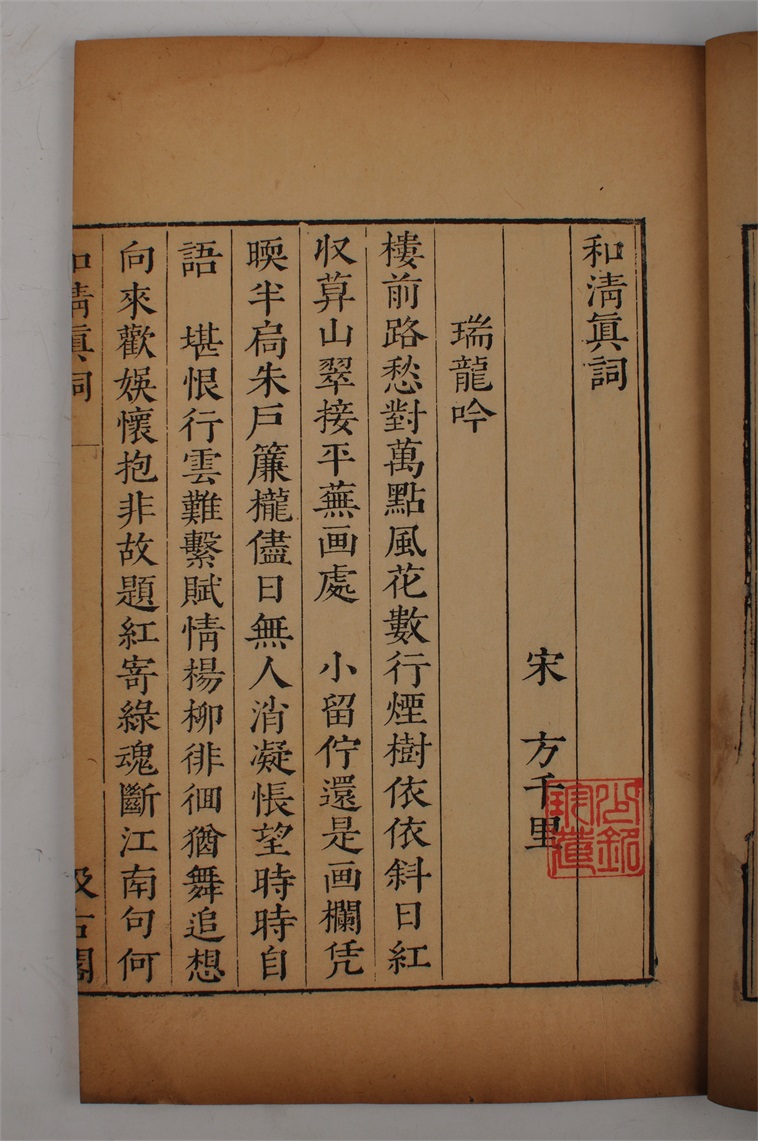 和淸眞詞
宋　方千里
瑞龍吟
樓前路愁對萬點風花數行煙樹依依斜日紅
収算山翠接平蕪画處　小留佇還是画欄凭
暎半扃朱戶簾櫳儘日無人消凝悵望時時自
語　堪恨行雲難繫賦情楊柳徘徊猶舞追想
向來歡娛懷抱非故題紅寄綠魂斷江南句何
和淸眞詞
汲古閣